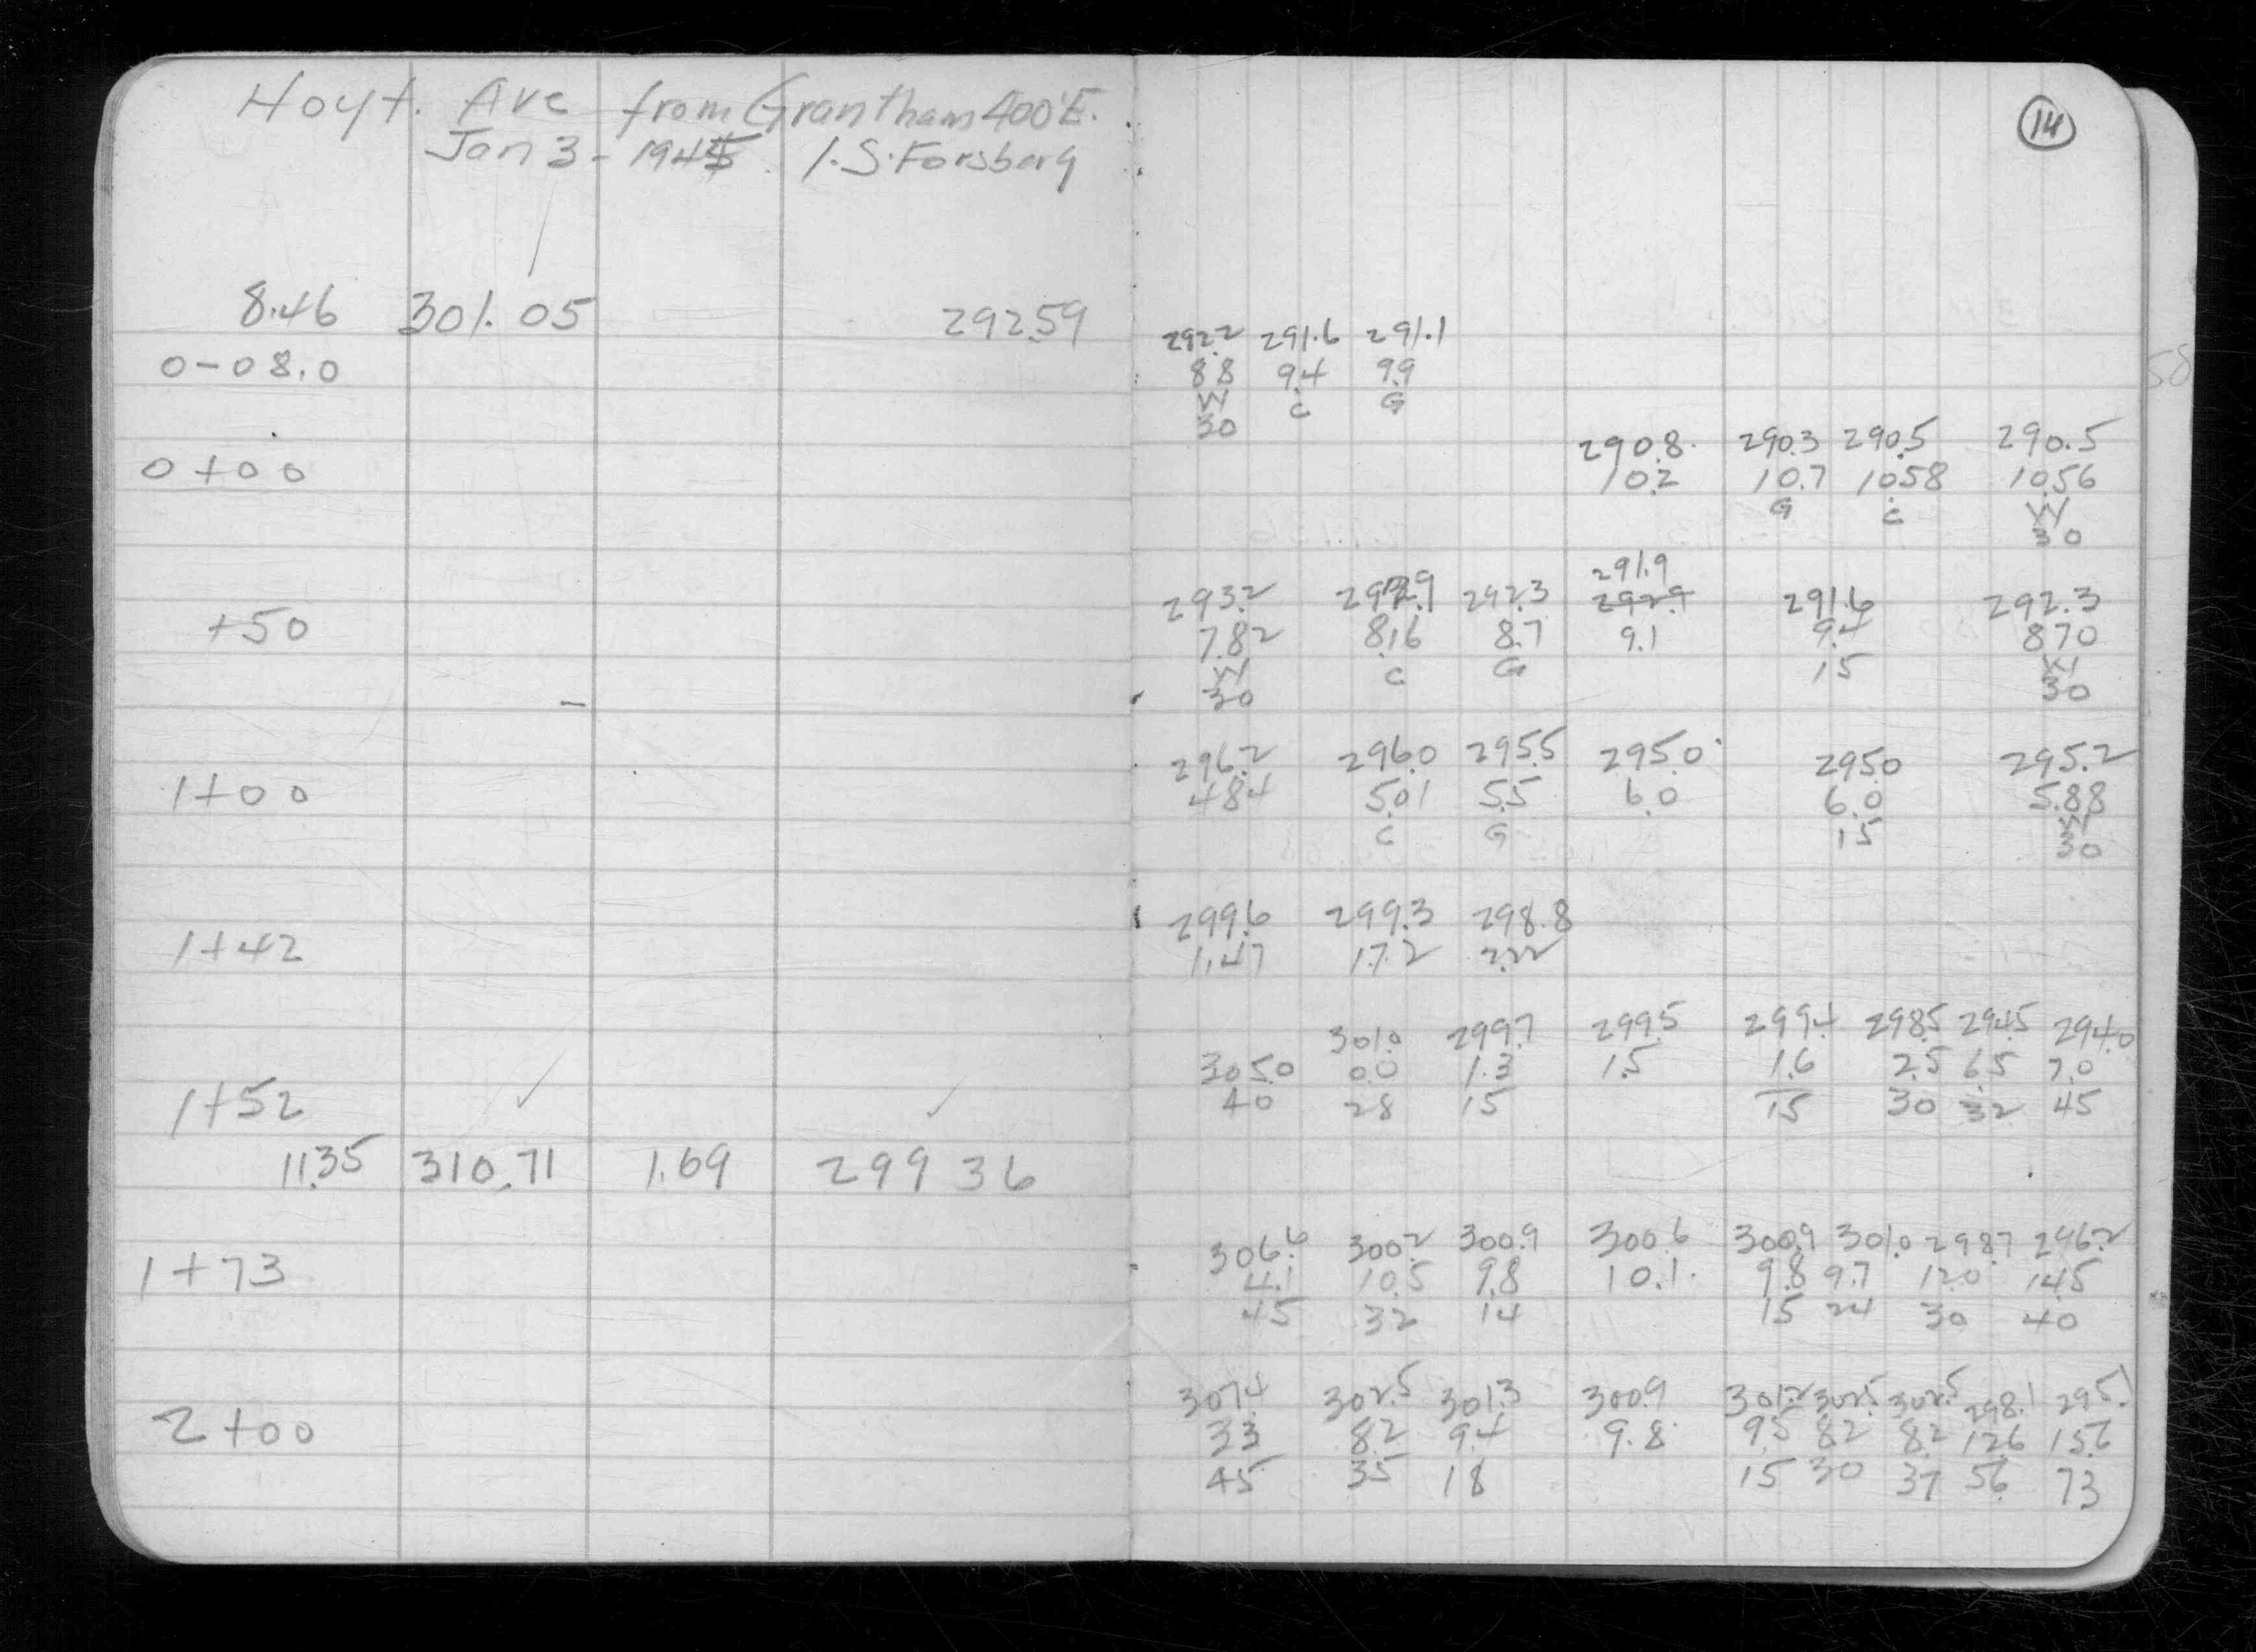 Hoyt. Ave from Grantham 400'E.
Jan 3 - 1945 I.S. Forsberg
8.46 301.05 292.59
0-08.0
0+00
+50
1+00
1+42
1+52
11.35 310.71 1.69 299 36
1+73
2+00
14
292.2 291.6 291.1
8.8 9.4 9.9
W C G
30
290.8 290.3 290.5 290.5
10.2 10.7 10.58 10.56
G C W
30
291.9
293.2 292.9 292.3 292.9 291.6 292.3
7.82 8.16 8.7 9.1 9.4 8.70
W C G 15 W
30 30
296.2 296.0 295.5 295.0 295.0 295.2
4.84 5.01 5.5 6.0 6.0 5.88
C G 15 W
30
299.6 299.3 298.8
1.47 1.72 2.22
301.0 299.7 299.5 299.4 298.5 294.5 294.0
305.0 0.0 1.3 1.5 1.6 2.5 6.5 7.0
40 28 15 15 30 32 45
306.6 300.2 300.9 300.6 300.9 301.0 298.7 296.2
4.1 10.5 9.8 10.1 9.8 9.7 12.0 14.5
45 32 14 15 24 30 40
307.4 302.5 301.3 300.9 301.2 302.5 302.5 298.1 295.1
3.3 8.2 9.4 9.8 9.5 8.2 8.2 12.6 15.6
45 35 18 15 30 37 56 73
58